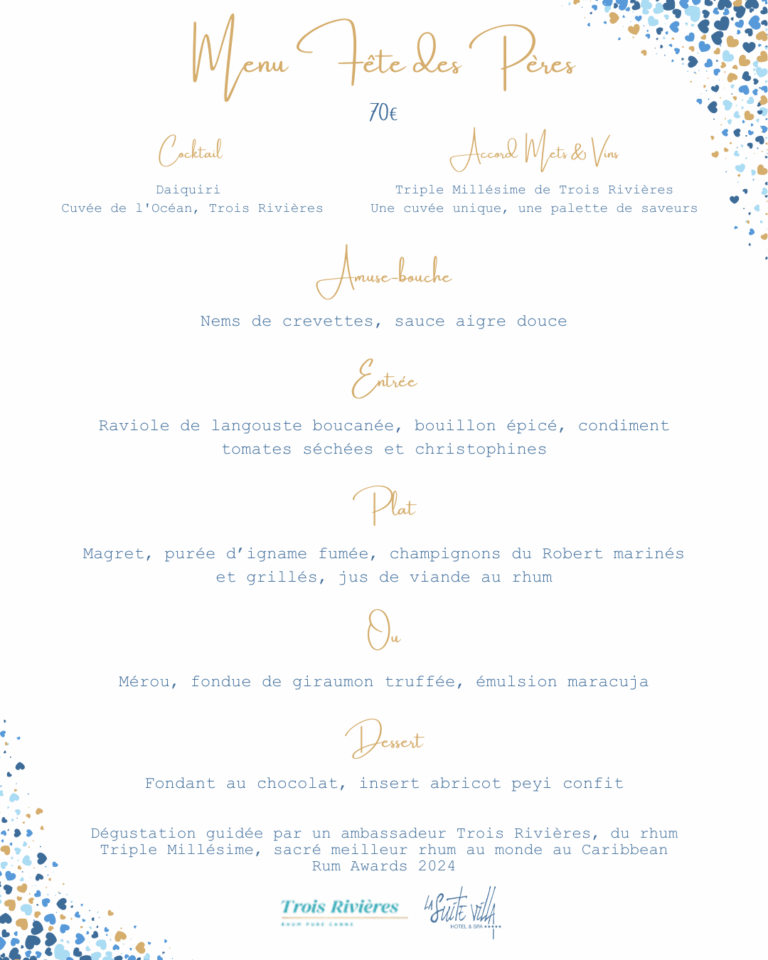 Menu Fête des Pères
70€
Cocktail
Daiquiri
Cuvée de l'Océan, Trois Rivières
Accord Mets & Vins
Triple Millésime de Trois Rivières
Une cuvée unique, une palette de saveurs
Amuse-bouche
Nems de crevettes, sauce aigre douce
Entrée
Raviole de langouste boucanée, bouillon épicé, condiment
tomates séchées et christophines
Plat
Magret, purée d’igname fumée, champignons du Robert marinés
et grillés, jus de viande au rhum
Ou
Mérou, fondue de giraumon truffée, émulsion maracuja
Dessert
Fondant au chocolat, insert abricot peyi confit
Dégustation guidée par un ambassadeur Trois Rivières, du rhum
Triple Millésime, sacré meilleur rhum au monde au Caribbean
Rum Awards 2024
Trois Rivières
RHUM PURE CANNE
LA SUITE VILLA
HOTEL & SPA